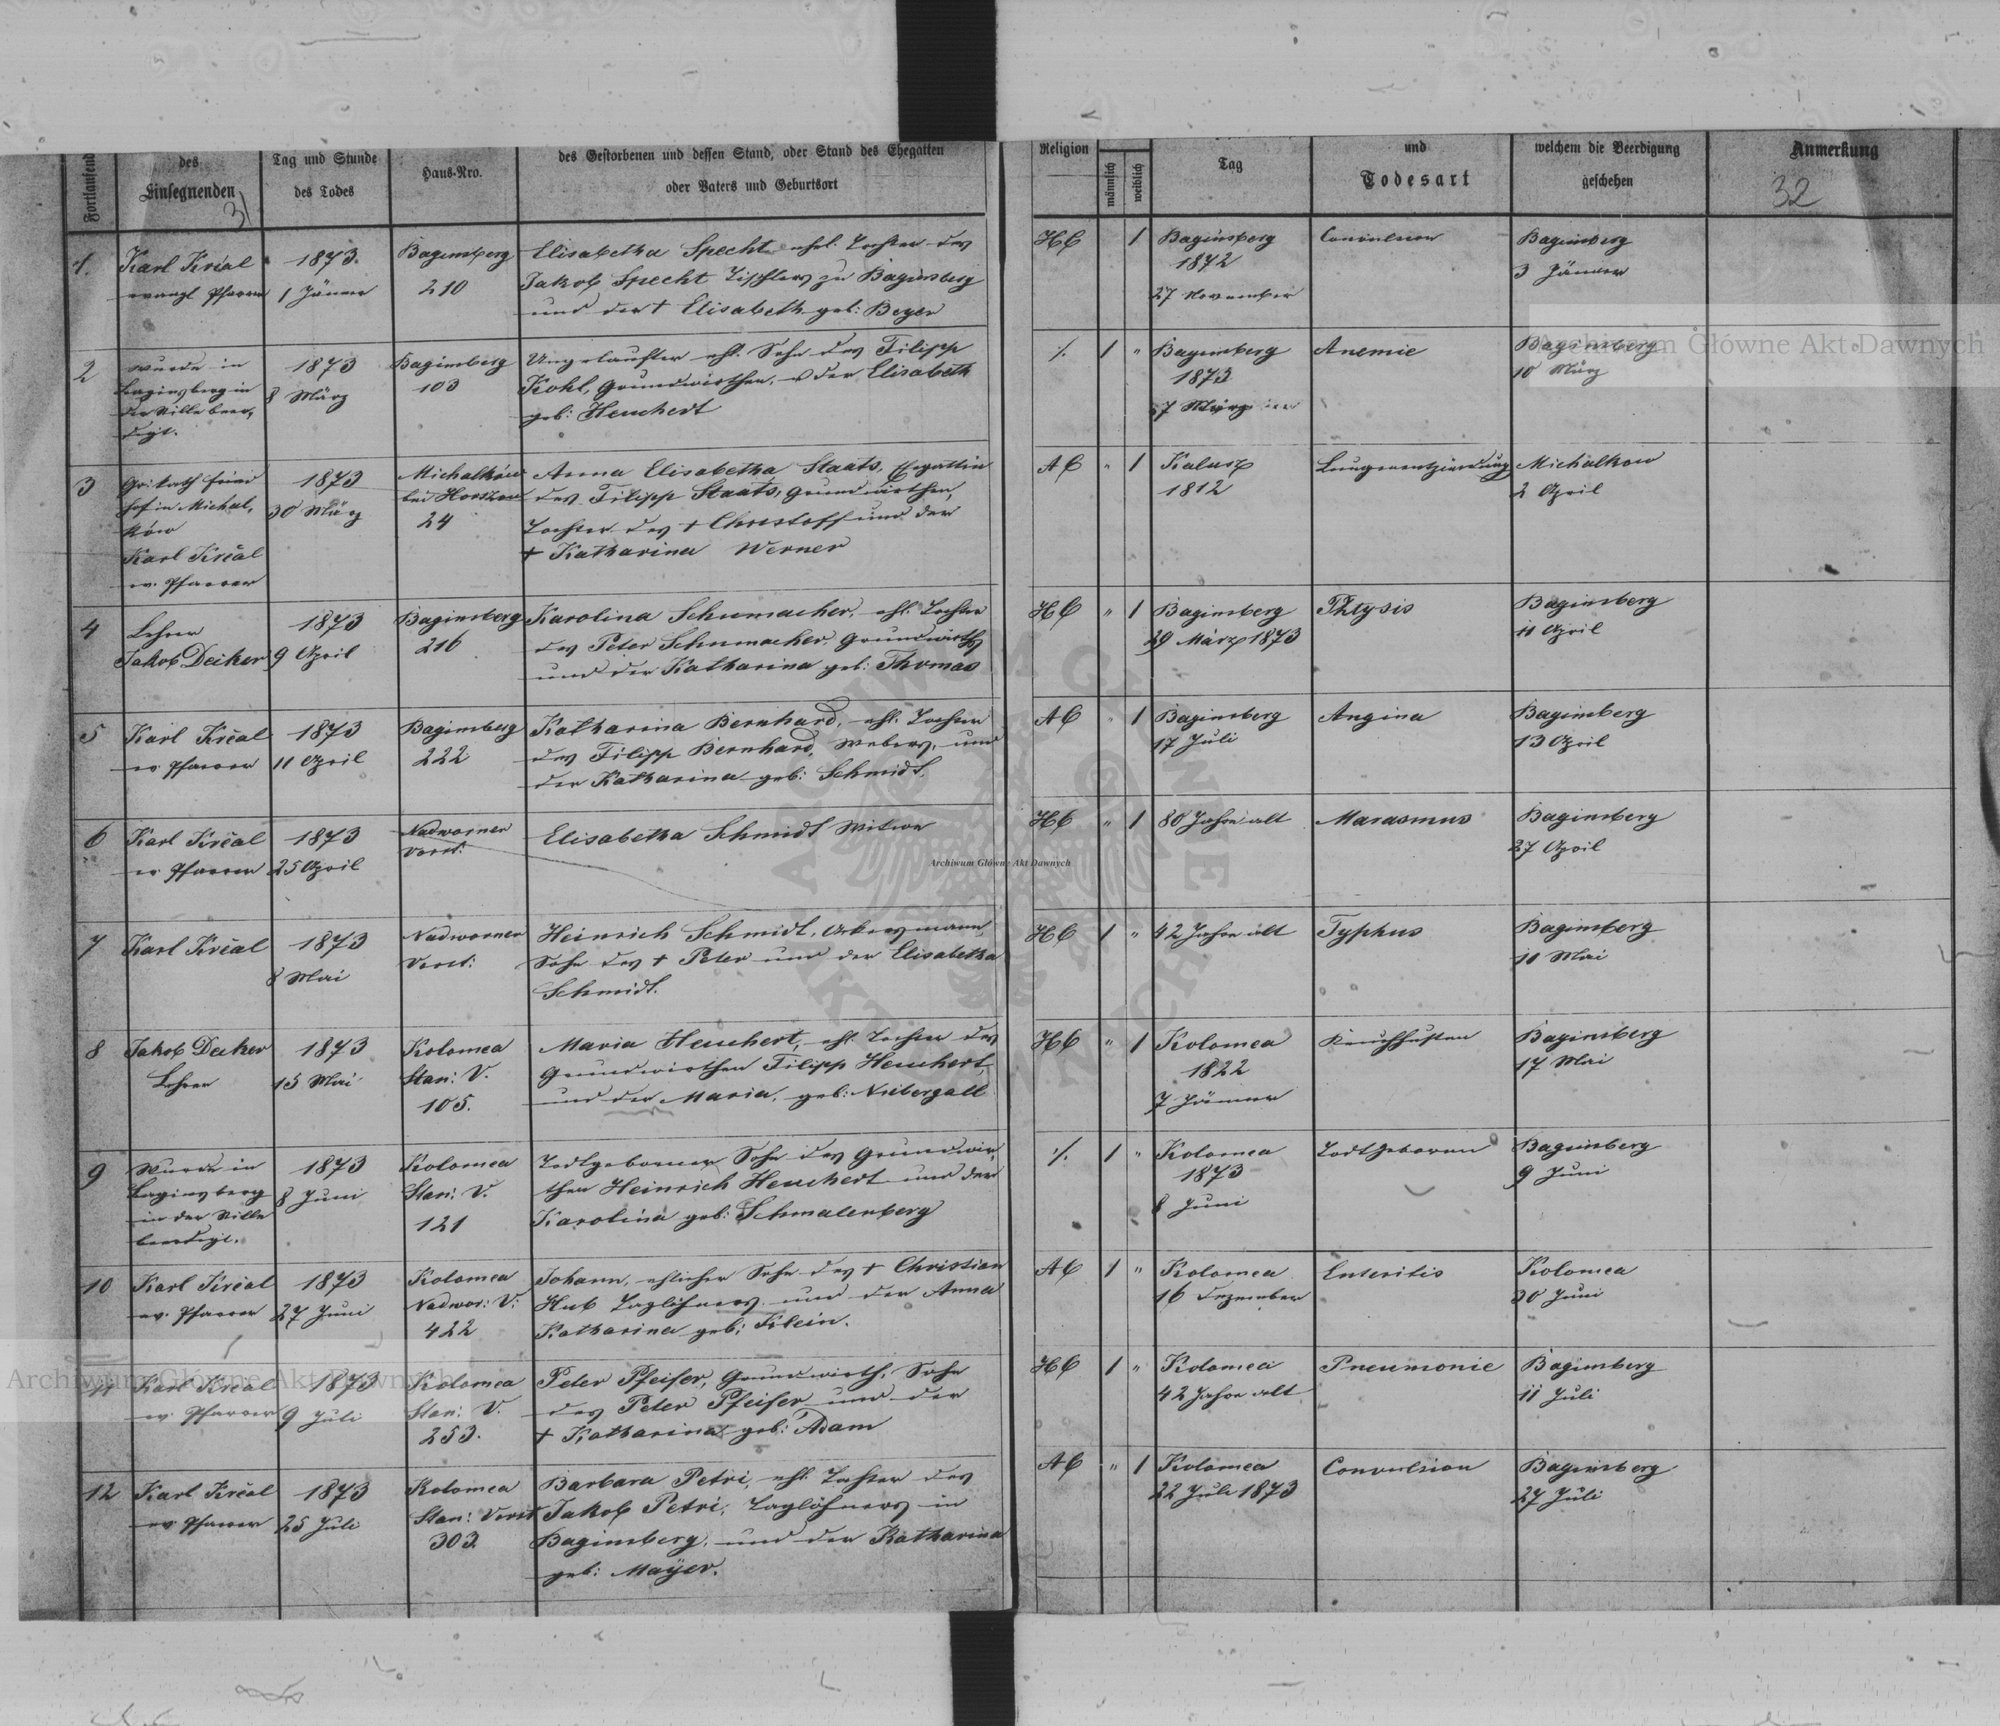 Fortlaufend
des
Einsegnenden
31
Tag und Stunde
des Todes
Haus-Nro.
des Gestorbenen und dessen Stand, oder Stand des Ehegatten
oder Vaters und Geburtsort
Religion
männlich
weiblich
Tag
und
Todesart
welchem die Beerdigung
geschehen
Anmerkung
32
1.
Karl Krčal
evangl Pfarrer
1873.
1 Jänner
Baginsberg
210
Elisabetha Specht ehel. Tochter des
Jakob Specht Tischlers zu Baginsberg
und der † Elisabeth geb: Beyer
HC 1
Baginsberg
1872
27 November
Convulsion
Baginsberg
3 Jänner
2
wurde in
Baginsberg in
der Stille beer,
digt.
1873
8 März
Baginsberg
103
Ungetaufter ehl. Sohn des Filipp
Kohl, Grundwirthen, u der Elisabeth
geb: Heuchert
./. 1 "
Baginsberg
1873
7 März
Anemie
Baginsberg
10 März
3
hof in Michal,
ków
Karl Krčal
ev. Pfarrer
1873
30 März
Michalków
bei
24
Anna Elisabetha Staats, Ehegattin
des Filipp Staats, Grundwirthen,
Tochter des † Christoff und der
† Katharina Werner
AC " 1
Kalusz
1812
Lungenentzündung
Michalkow
2 April
4
Lehrer
Jakob Decker
1873
9 April
Baginsberg
216
Karolina Schumacher, ehl. Tochter
des Peter Schumacher, Grundwirths
und der Katharina geb: Thomas
HC " 1
Baginsberg
29 März 1873
Phtysis
Baginsberg
11 April
5
Karl Krčal
ev Pfarrer
1873
11 April
Baginsberg
222
Katharina Bernhard, ehl. Tochter
des Filipp Bernhard, Webers, und
der Katharina geb: Schmidt.
AC " 1
Baginsberg
17 Juli
Angina
Baginsberg
13 April
6
Karl Krčal
ev Pfarrer
1873
25 April
Nadworner
Vorst:
Elisabetha Schmidt Witwe
HC " 1
80 Jahre alt
Marasmus
Baginsberg
27 April
7
Karl Krčal
1873
8 Mai
Nadworner
Vorst:
Heinrich Schmidt, Ackersmann
Sohn des † Peter und der Elisabetha
Schmidt.
HC 1 "
42 Jahre alt
Typhus
Baginsberg
10 Mai
8
Jakob Decker
Lehrer
1873
15 Mai
Kolomea
Stan: V.
105.
Maria Heuchert, ehl. Tochter des
Grundwirthen Filipp Heuchert,
und der Maria, geb: Niebergall
HC " 1
Kolomea
1822
7 Jänner
Keuchhusten
Baginsberg
17 Mai
9
Wurde in
Baginsberg
in der Stille
beerdigt.
1873
8 Juni
Kolomea
Stan: V.
121
Todtgeborner Sohn des Grundwir,
then Heinrich Heuchert und der
Karolina geb: Schmalenberg
./. 1 "
Kolomea
1873
8 Juni
Todtgeboren
Baginsberg
9 Juni
10
Karl Krčal
ev. Pfarrer
1873
27 Juni
Kolomea
Nadwor: V:
422
Johann, ehlicher Sohn des † Christian
Hub Taglöhners und der Anna
Katharina geb: Klein.
AC 1 "
Kolomea
16 Dezember
Enteritis
Kolomea
30 Juni
11
Karl Krčal
ev. Pfarrer
1873
9 Juli
Kolomea
Stan: V.
253.
Peter Pfeifer, Grundwirth, Sohn
des Peter Pfeifer und der
† Katharina geb: Adam
HC 1 "
Kolomea
42 Jahre alt
Pneumonie
Baginsberg
11 Juli
12
Karl Krčal
ev Pfarrer
1873
25 Juli
Kolomea
Stan: Vorst
303.
Barbara Petri, ehl. Tochter des
Jakob Petri, Taglöhners in
Baginsberg, und der Katharina
geb: Mayer.
AC " 1
Kolomea
22 Juli 1873
Convulsion
Baginsberg
27 Juli
Archiwum Główne Akt Dawnych
Archiwum Główne Akt Dawnych
Archiwum Główne Akt Dawnych
ARCHIWUM GŁÓWNE AKT DAWNYCH